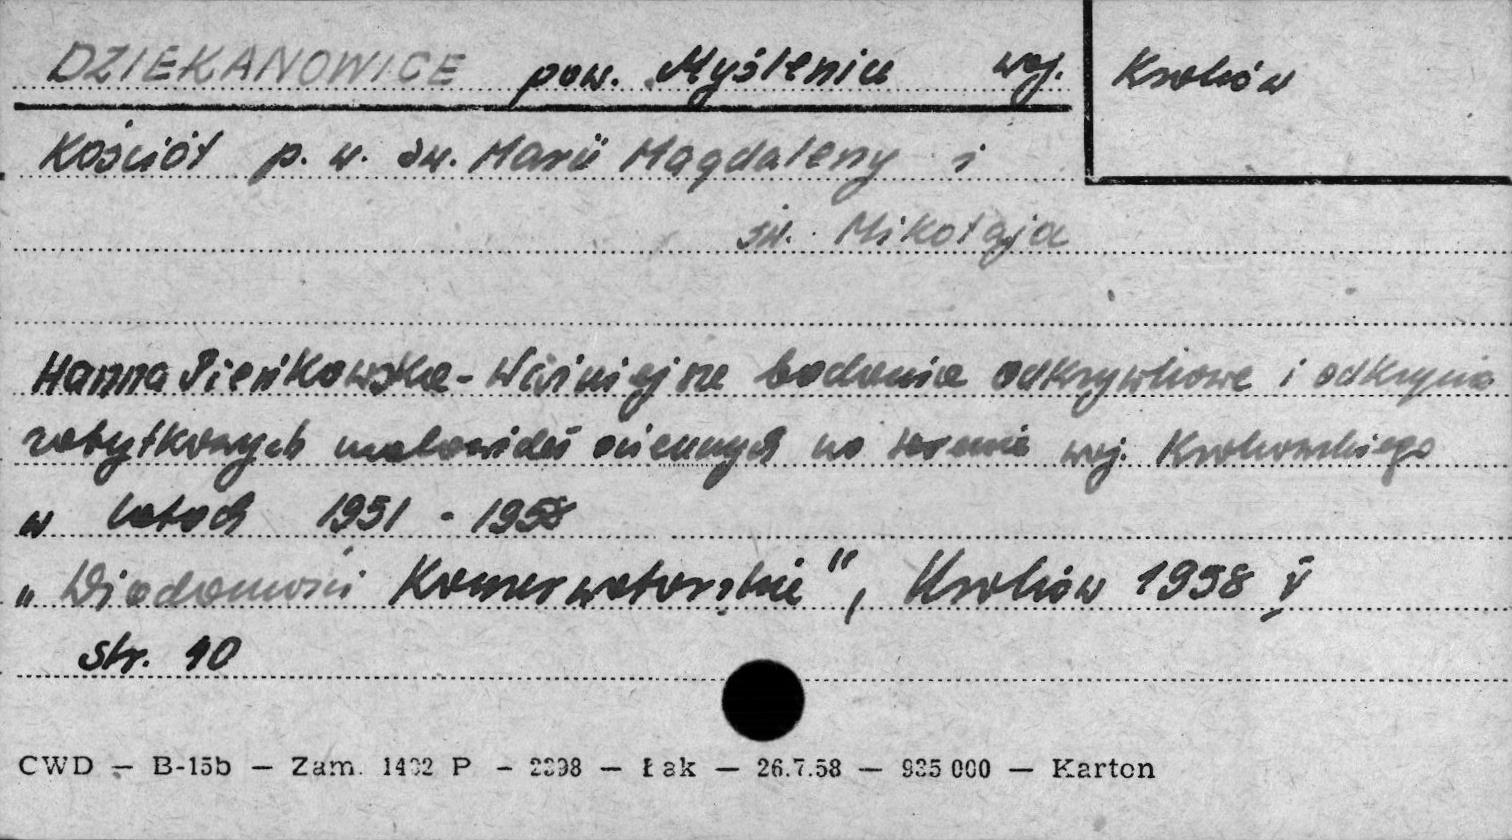 DZIEKANOWICE pow. Myślenice woj. Kraków
Kościół p. w. św. Marii Magdaleny i
św. Mikołaja
Hanna Pieńkowska - Ważniejsze badania odkrywkowe i odkrycia
zabytkowych malowideł ściennych na terenie woj. Krakowskiego
w latach 1951 - 1958
„Wiadomości Konserwatorskie", Kraków 1958 V
str. 10
CWD — B-15b — Zam. 1402 P — 2398 — Łak — 26.7.58 — 935 000 — Karton